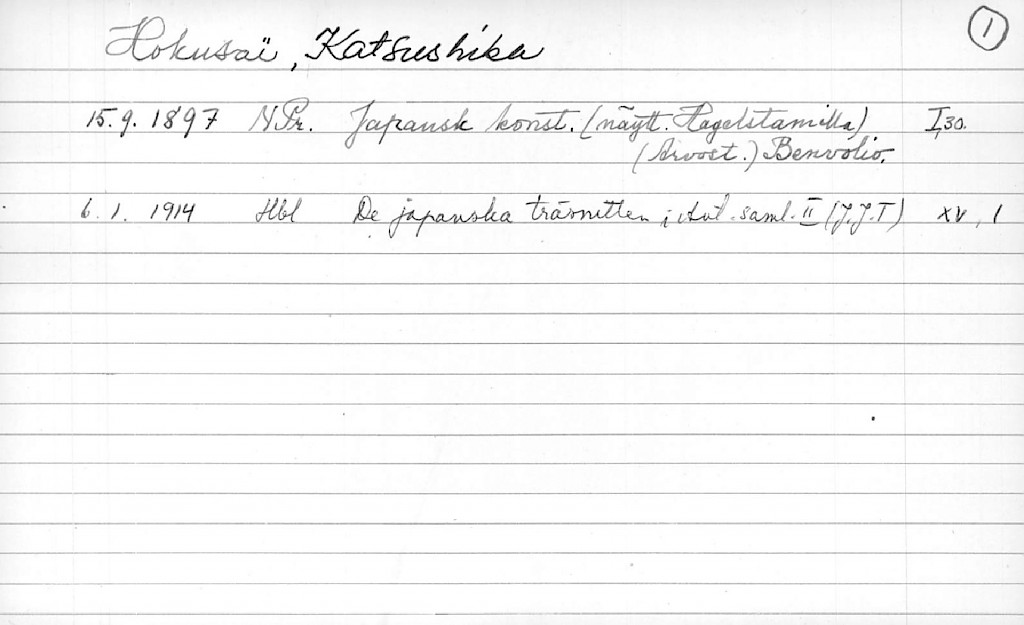 1
Hokusaï, Katsushika
15.9.1897 N Pr. Japansk konst. (näytt. Hagelstamilla) I,30.
(Arvost.) Benvolio.
6.1.1914 Hbl De japanska träsnitten i Ant. saml. II (J.J.T) XV, 1